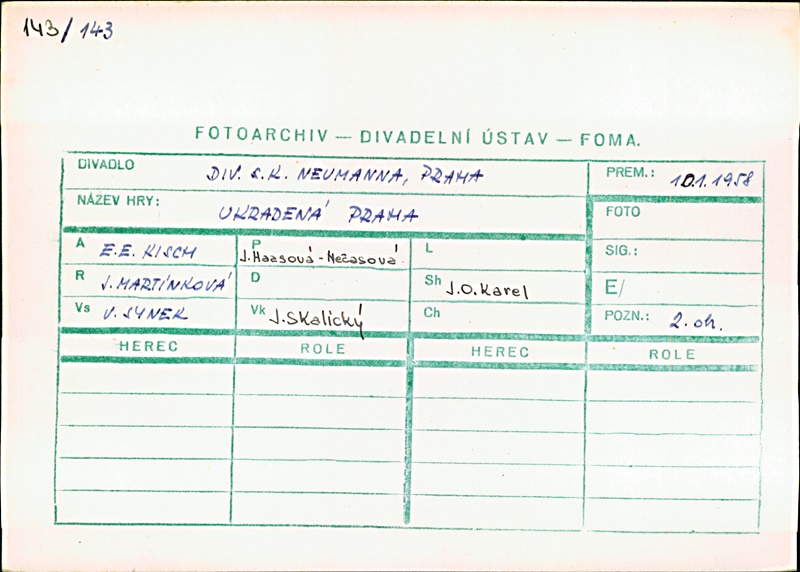 143/143
FOTOARCHIV — DIVADELNÍ ÚSTAV — FOMA.
DIVADLO DIV. S.K. NEUMANNA, PRAHA PREM.: 10.1.1958
NÁZEV HRY: UKRADENÁ PRAHA FOTO
A E.E. KISCH P J. Haasová-Nečasová L SIG.:
R J. MARTÍNKOVÁ D Sh J.O. Karel E/
Vs V. SYNEK Vk J. Skalický Ch POZN.: 2. oh.
HEREC ROLE HEREC ROLE